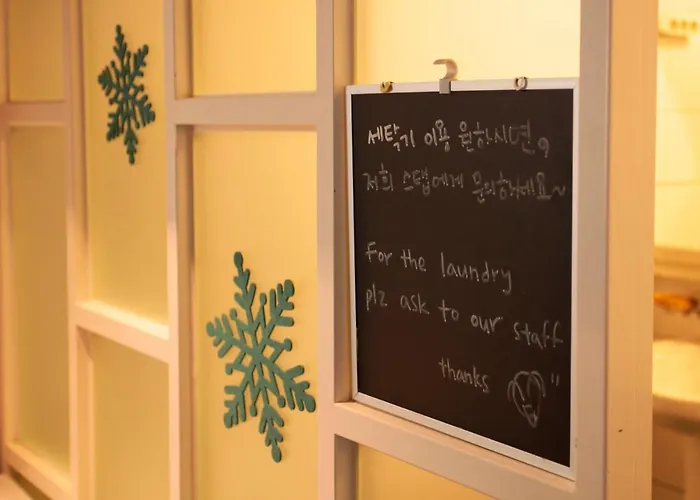 세탁기 이용 원하시면,
저희 스탭에게 문의하세요~
For the laundry
plz ask to our staff
thanks